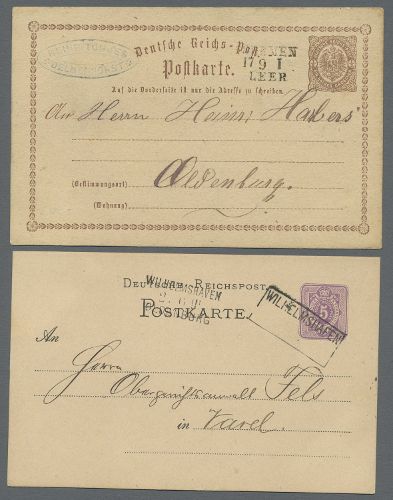 Deutsche Reichs-Post
17 9 I
LEER
Postkarte.
Auf die Vorderseite ist nur die Adresse zu schreiben.
An Herrn Heinr. Habers
(Bestimmungsort) Oldenburg.
(Wohnung)
DEUTSCHE REICHSPOST
WILHELMSHAVEN
POSTKARTE.
5
WILHELMSHAVEN
An
Herrn
Obergerichtsanwalt Fels
in Varel.